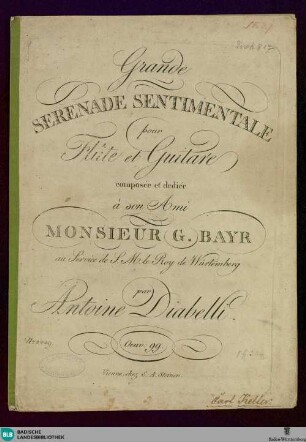 Grande
SERENADE SENTIMENTALE
pour
Flûte et Guitare
composée et dediée
à son Ami
MONSIEUR G. BAYR
au Service de S. M. le Roy de Würtemberg
par
Antoine Diabelli.
Oeuv. 99.
Vienne, chez S. A. Steiner
Carl Keller
BLB BADISCHE LANDESBIBLIOTHEK
Baden-Württemberg